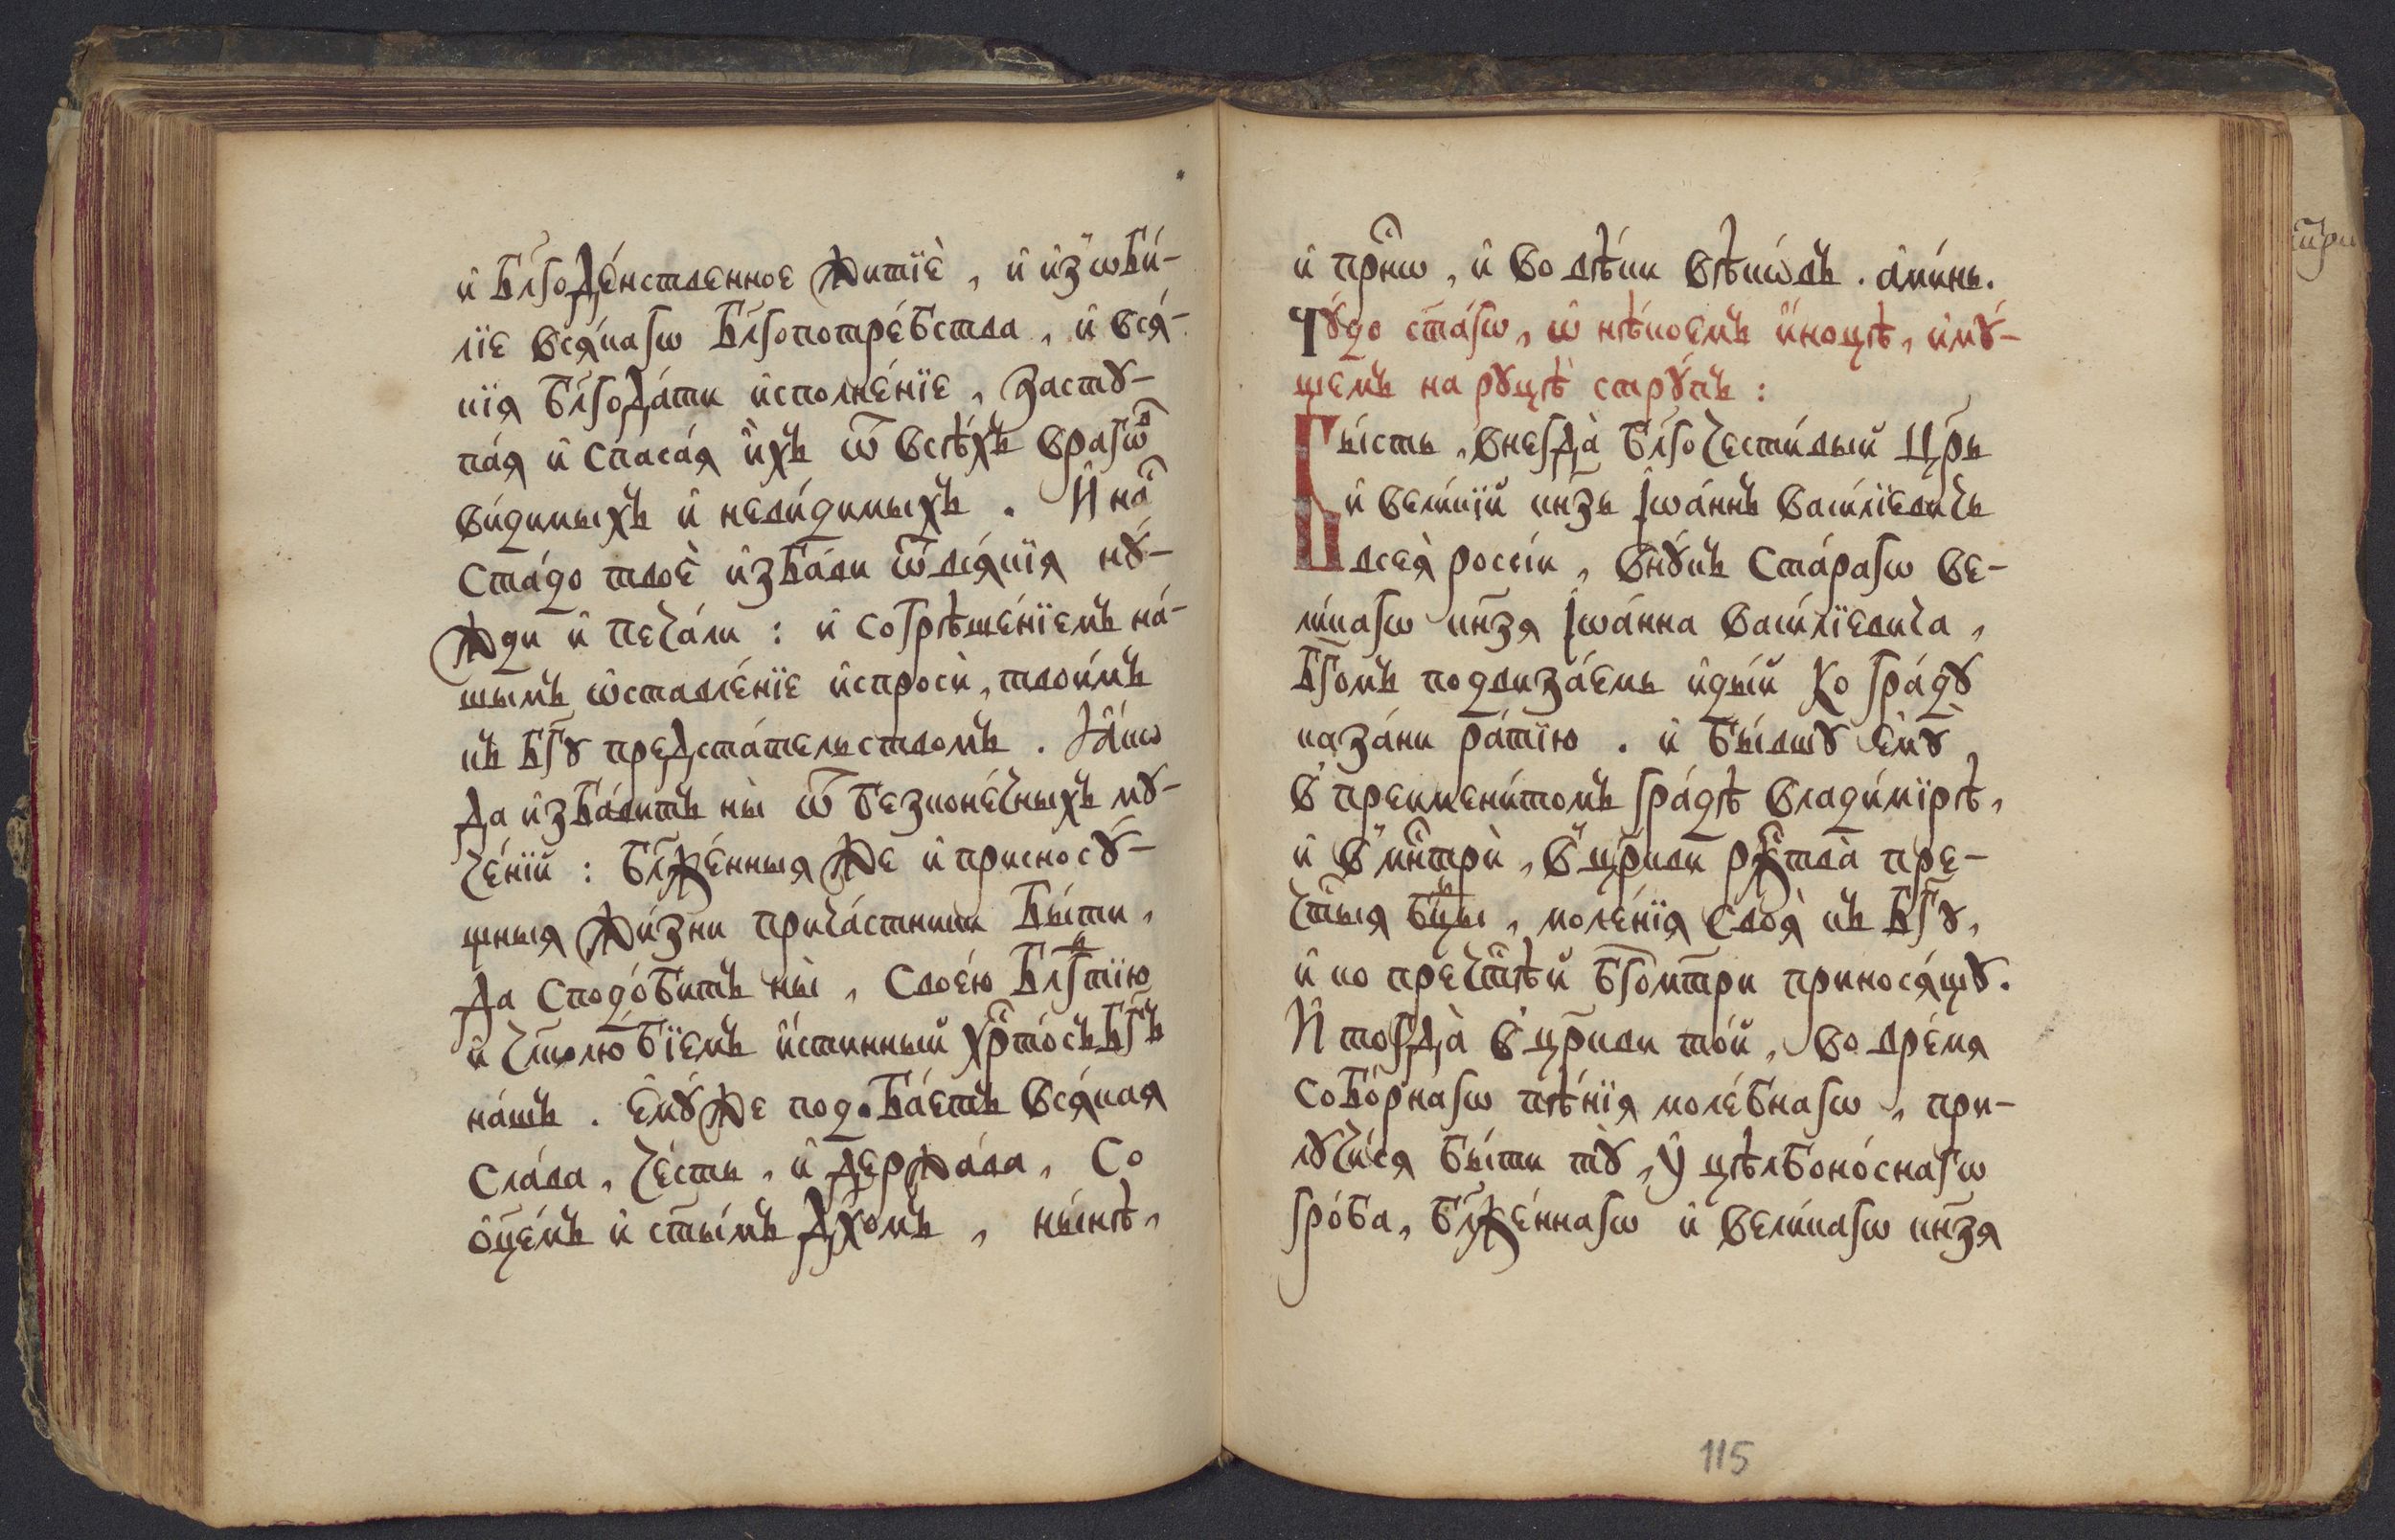 и҆ бл҃годе́нственное житїѐ, и҆ и҆зѡби́-
лїе всѧ́кагѡ бл҃гопотре́бства, и҆ всѧ́-
кїѧ бл҃года́ти и҆сполне́нїе, застꙋ-
па́ѧ и҆ спаса́ѧ и҆́хъ ѿ всѣ́хъ врагѡ́въ
ви́димыхъ и҆ неви́димыхъ. И на́съ
ста́до твоѐ и҆зба́ви ѿ всѧ́кїѧ нꙋ́-
жди и҆ печа́ли: и҆ согрѣше́нїемъ на́-
шымъ ѡ҆ставле́нїе и҆спросѝ, твои́мъ
къ бг҃ꙋ предста́тельствомъ. Ꙗ҆́кѡ
да и҆зба́витъ ны̀ ѿ безконе́чныхъ мꙋ-
че́нїй: бл҃же́нныѧ же и҆ присносꙋ́-
щныѧ жи́зни прича́стники бы́ти,
да сподо́битъ ны̀, своє́ю бл҃гтїю
и҆ чл҃колю́бїемъ и҆́стинный хр҃то́съ бг҃ъ
на́шъ. є҆мꙋ́же подоба́етъ всѧ́каѧ
сла́ва, че́сть, и҆ держа́ва, со
ѻ҆ц҃е́мъ и҆ ст҃ы́мъ дх҃омъ, ны́нѣ,
и҆ при́снѡ, и҆ во вѣ́ки вѣкѡ́въ. а҆ми́нь.
Чꙋ́до ст҃а́гѡ, ѡ҆ нѣ́коемъ и҆́ноцѣ, и҆мꙋ́-
щемъ на рꙋцѣ̀ стрꙋ́пъ:
Бы́сть, внегда̀ бл҃гочести́вый цр҃ь
и҆ вели́кїй кн҃зь І҆ѡа́ннъ васи́лїевичь
всеѧ̀ россі́и, внꙋ́къ ста́рагѡ ве-
ли́кагѡ кн҃зѧ І҆ѡа́нна васи́лїевича,
бг҃омъ подвиза́емь и҆ды́й ко гра́дꙋ
каза́ни ра́тїю. и҆ бы́вшꙋ є҆мꙋ̀
в̾ преимени́томъ гра́дѣ влади́мїрѣ,
и҆ в̾ мн҃трѝ, в̾ цр҃кви рж҃тва̀ пре-
чт҃ыѧ бц҃ы, моле́нїѧ своѧ̀ къ бг҃ꙋ,
и҆ ко пречт҃ѣй бг҃ом҃три приносѧ́щꙋ.
И тогда̀ в̾ цр҃кви то́й, во вре́мѧ
собо́рнагѡ пѣ́нїѧ моле́бнагѡ, при-
лꙋчи́сѧ бы́ти тꙋ̀, ᲂу҆ цѣлбоно́снагѡ
гро́ба, бл҃же́ннагѡ и҆ вели́кагѡ кн҃зѧ
115